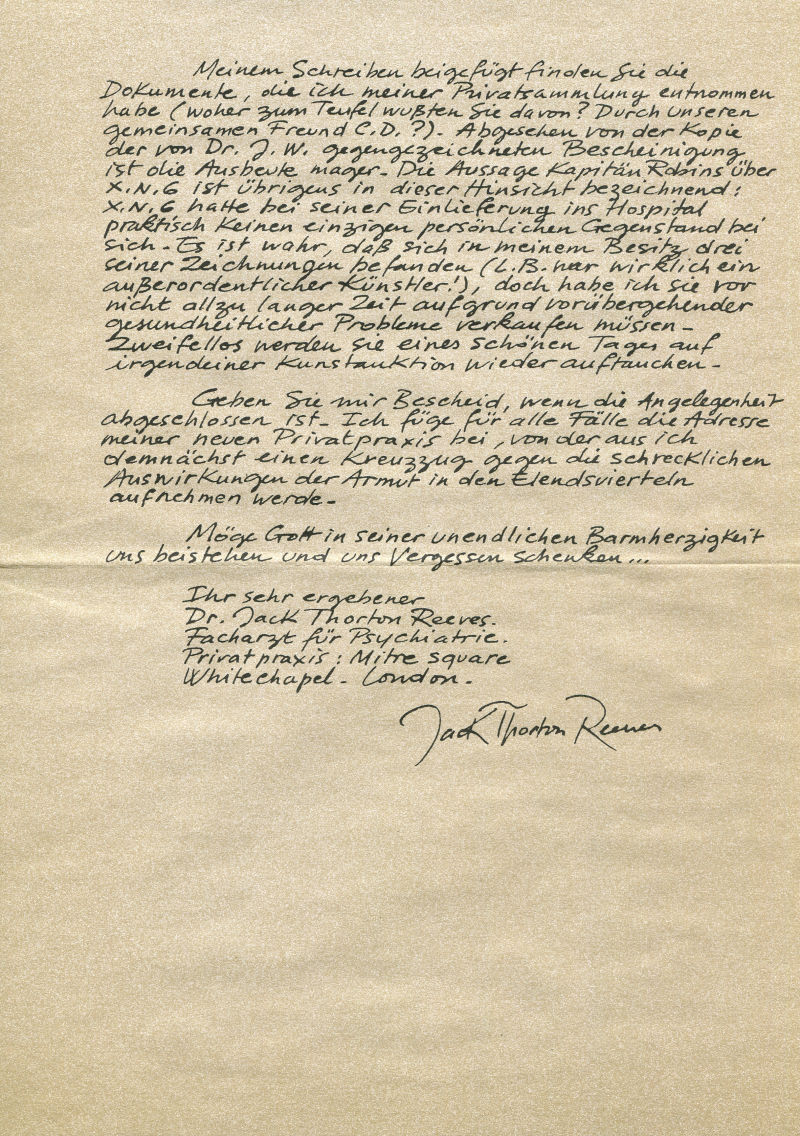 Meinem Schreiben beigefügt finden Sie die
Dokumente, die ich meiner Privatsammlung entnommen
habe (woher zum Teufel wußten Sie davon? Durch unseren
gemeinsamen Freund C.D.?). Abgesehen von der Kopie
der von Dr. J.W. gegengezeichneten Bescheinigung
ist die Ausbeute mager. Die Aussage Kapitän Robins über
X.N.6 ist übrigens in dieser Hinsicht bezeichnend:
X.N.6 hatte bei seiner Einlieferung ins Hospital
praktisch keinen einzigen persönlichen Gegenstand bei
sich. Es ist wahr, daß sich in meinem Besitz drei
seiner Zeichnungen befanden (L.B. war wirklich ein
außerordentlicher Künstler!), doch habe ich sie vor
nicht allzu langer Zeit aufgrund vorübergehender
gesundheitlicher Probleme verkaufen müssen.
Zweifellos werden sie eines schönen Tages auf
irgendeiner Kunstauktion wieder auftauchen.
Geben Sie mir Bescheid, wenn die Angelegenheit
abgeschlossen ist. Ich füge für alle Fälle die Adresse
meiner neuen Privatpraxis bei, von der aus ich
demnächst einen Kreuzzug gegen die schrecklichen
Auswirkungen der Armut in den Elendsvierteln
aufnehmen werde.
Möge Gott in seiner unendlichen Barmherzigkeit
uns beistehen und uns Vergessen schenken...
Ihr sehr ergebener
Dr. Jack Thorton Reeves.
Facharzt für Psychiatrie.
Privatpraxis: Mitre square
Whitechapel. London.
Jack Thorton Reeves